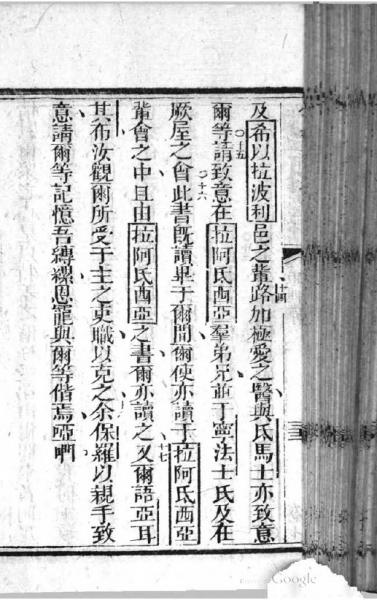 及希以拉波利邑之輩路加極愛之醫與氐馬士亦致意
爾等請致意在拉阿氐西亞羣弟兄並丁寧法士氏及在
厥屋之會此書既讀畢于爾間爾使亦讀于拉阿氐西亞
輩會之中且由拉阿氐西亞之書爾亦讀之又爾語亞耳
其布汝觀爾所受于主之吏職以克之余保羅以親手致
意請爾等記憶吾縛縲恩寵與爾等偕焉啞𠵽
十四
十五
十六
十七
Google